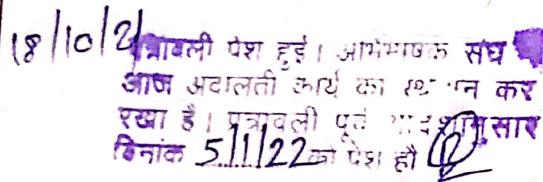 18/10/21 पत्रावली पेश हुई। अभिभाषक संघ
आज अदालती कार्य का स्थगन कर
रखा है। पत्रावली पूर्व आदेशानुसार
दिनांक 5/1/22 को पेश हो